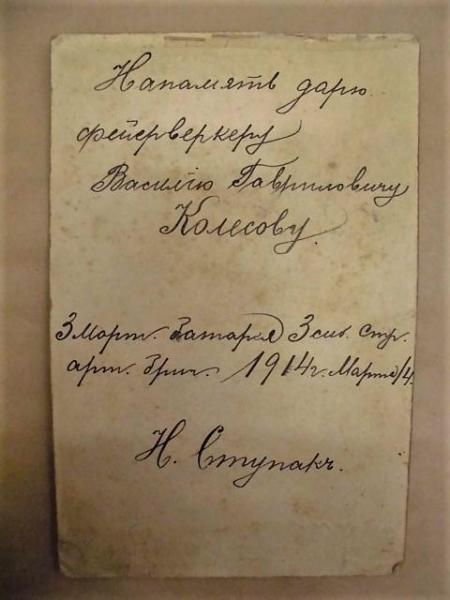 Напамять дарю
фейерверкеру
Василію Гавриловичу
Колесову.
3 Морт. батарея 3 сиб. стр.
арт. бриг. 1914 г. Марта 14.
Н. Ступакъ.